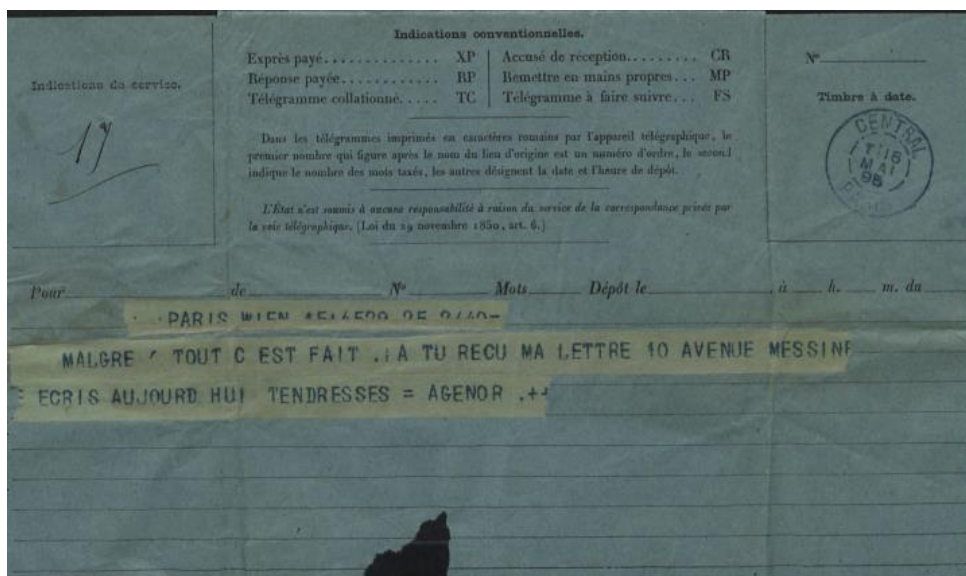 Indications de service.
17
Indications conventionnelles.
Exprès payé.............. XP
Réponse payée............ RP
Télégramme collationné..... TC
Accusé de réception......... CR
Remettre en mains propres... MP
Télégramme à faire suivre... FS
Dans les télégrammes imprimés en caractères romains par l'appareil télégraphique, le
premier nombre qui figure après le nom du lieu d'origine est un numéro d'ordre, le second
indique le nombre des mots taxés, les autres désignent la date et l'heure de dépôt.
L'État n'est soumis à aucune responsabilité à raison du service de la correspondance privée par
la voie télégraphique. (Loi du 29 novembre 1850, art. 6.)
N°
Timbre à date.
CENTRAL
16
MAI
98
Pour de N° Mots Dépôt le à h. m. du
PARIS WIEN
MALGRE ' TOUT C EST FAIT . A TU RECU MA LETTRE 10 AVENUE MESSINE
ECRIS AUJOURD HUI TENDRESSES = AGENOR .++